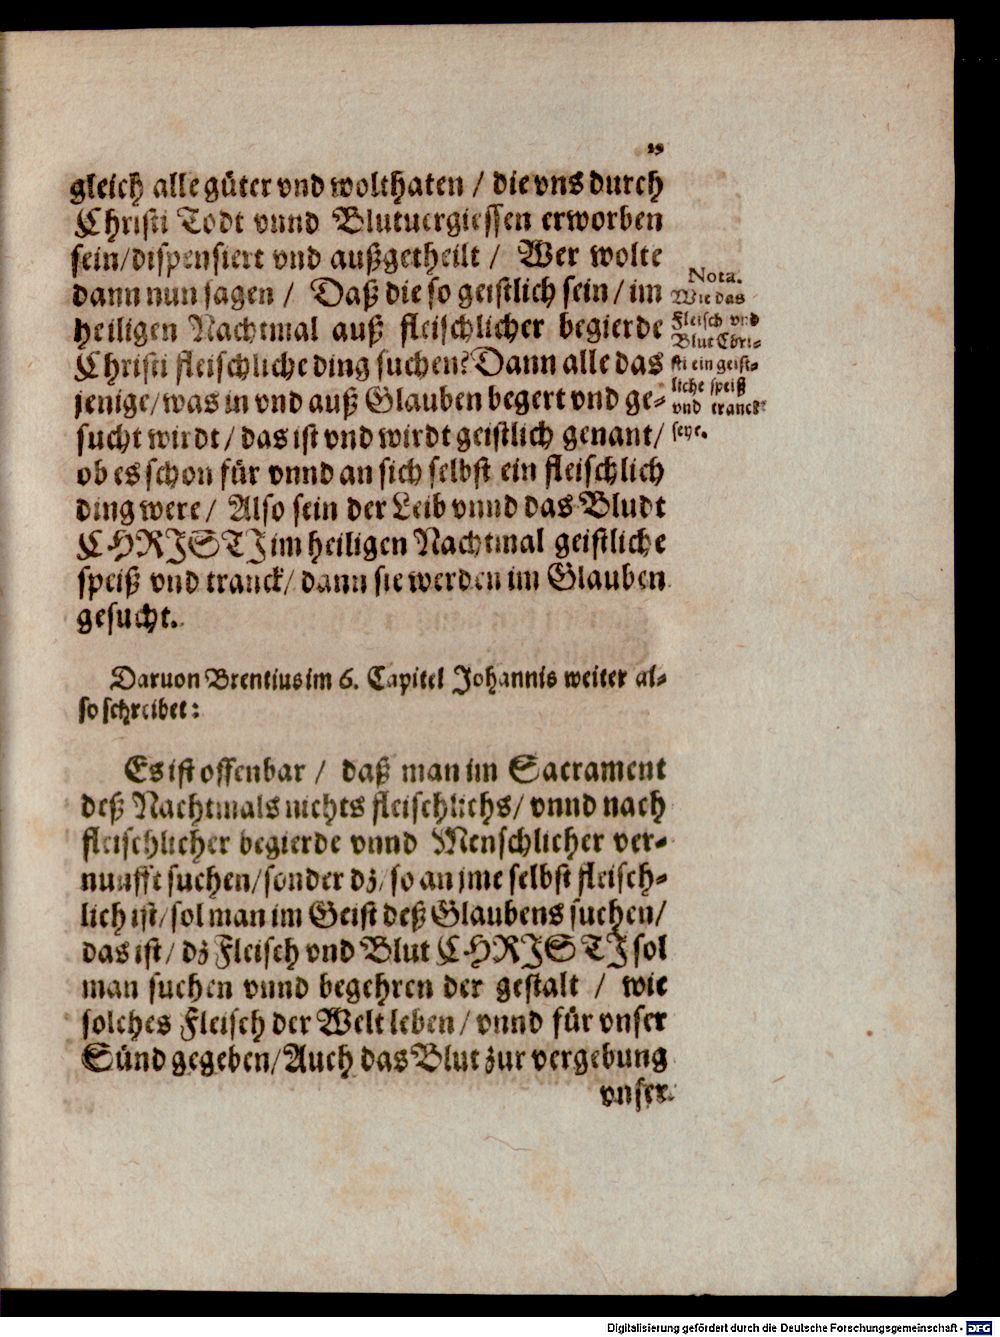 29
gleich alle güter vnd wolthaten / die vns durch
Christi Todt vnnd Blutuergiessen erworben
sein/dispensiert vnd außgetheilt / Wer wolte
dann nun sagen / Daß die so geistlich sein/ im
heiligen Nachtmal auß fleischlicher begierde
Christi fleischliche ding suchen? Dann alle das
jenige/was in vnd auß Glauben begert vnd ge-
sucht wirdt/ das ist vnd wirdt geistlich genant/
ob es schon für vnnd an sich selbst ein fleischlich
ding were/ Also sein der Leib vnnd das Bludt
CHRISTI im heiligen Nachtmal geistliche
speiß vnd tranck/ dann sie werden im Glauben
gesucht.
Nota.
Wie das
Fleisch vnd
Blut Chri-
sti ein geist-
liche speiß
vnd tranck
seye.
Daruon Brentius im 6. Capitel Johannis weiter al-
so schreibet:
Es ist offenbar / daß man im Sacrament
deß Nachtmals nichts fleischlichs/ vnnd nach
fleischlicher begierde vnnd Menschlicher ver-
nunfft suchen/sonder dz/ so an jme selbst fleisch-
lich ist/ sol man im Geist deß Glaubens suchen/
das ist/ dz Fleisch vnd Blut CHRISTI sol
man suchen vnnd begehren der gestalt / wie
solches Fleisch der Welt leben/ vnnd für vnser
Sünd gegeben/Auch das Blut zur vergebung
vnser
Digitalisierung gefördert durch die Deutsche Forschungsgemeinschaft - DFG